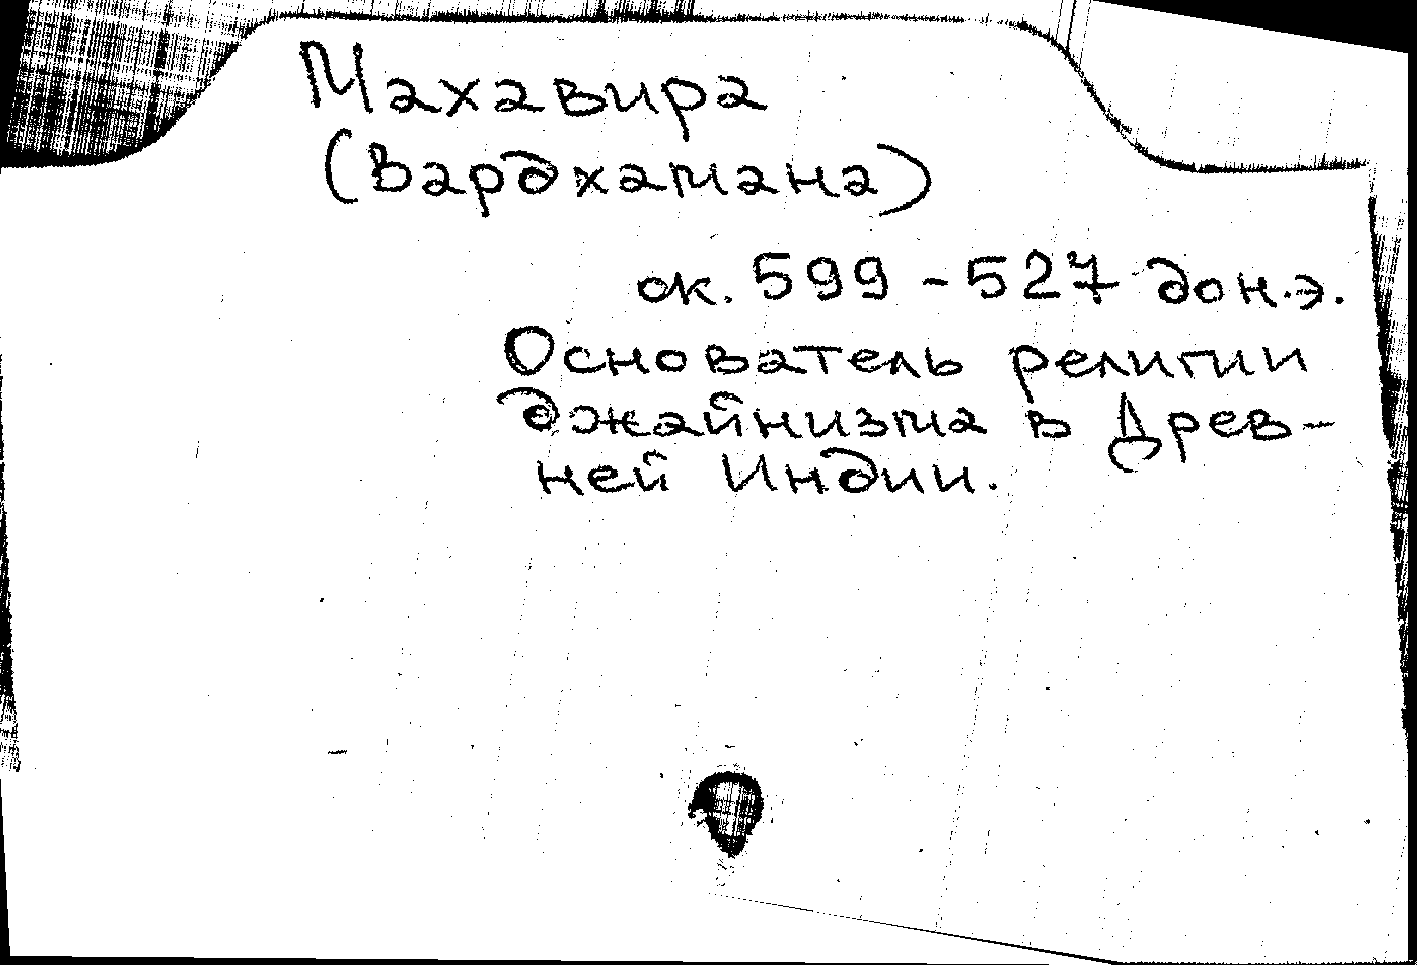 Махавира
(Вардхамана)
ок. 599 - 527 до н.э.
Основатель религии
джайнизма в Древ-
ней Индии.